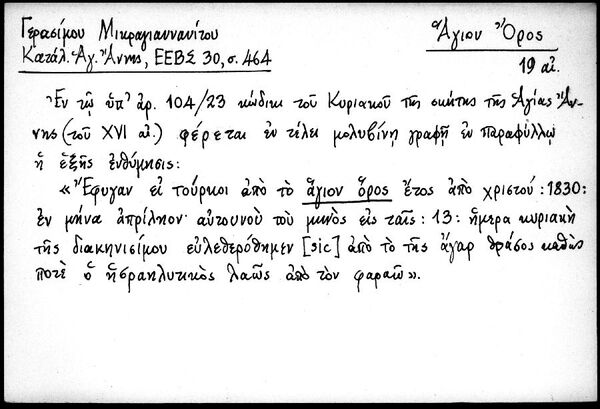 Γερασίμου Μικραγιαννανίτου
Κατάλ. Ἁγ. Ἄννης, ΕΕΒΣ 30, σ. 464
Ἅγιον Ὄρος
19 αἰ.
Ἐν τῷ ὑπ' ἀρ. 104/23 κώδικι τοῦ Κυριακοῦ τῆς σκήτης τῆς Ἁγίας Ἄν-
νης (τοῦ XVI αἰ.) φέρεται ἐν τέλει μολυβίνῃ γραφῇ ἐν παραφύλλῳ
ἡ ἑξῆς ἐνθύμησις:
« Ἔφυγαν εἰ τούρκοι ἀπὸ τὸ ἅγιον ὅρος ἔτος ἀπὸ χριστού : 1830:
ἐν μήνα ἀπρίληον· αὐτουνοὺ τοῦ μηνὸς εἰς ταῖς : 13 : ἥμερα κυριακὴ
τῆς διακηνισίμου εὐλεθερόθημεν [sic] ἀπὸ τὸ τῆς ἄγαρ θράσος καθὼς
ποτὲ ὅ ἡσραηλυτικὸς λαῶς ἀπὸ τὸν φαραῶ ».